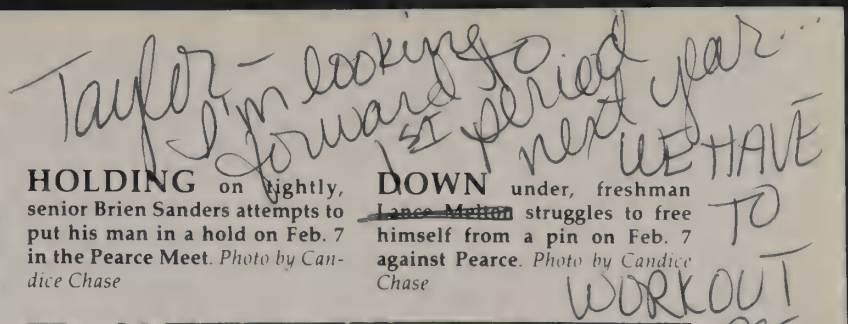 Taylor-
I'm looking
forward to
1ST period
next year...
WE HAVE
TO
WORKOUT
HOLDING on tightly,
senior Brien Sanders attempts to
put his man in a hold on Feb. 7
in the Pearce Meet. Photo by Can-
dice Chase
DOWN under, freshman
Lance Melton struggles to free
himself from a pin on Feb. 7
against Pearce. Photo by Candice
Chase